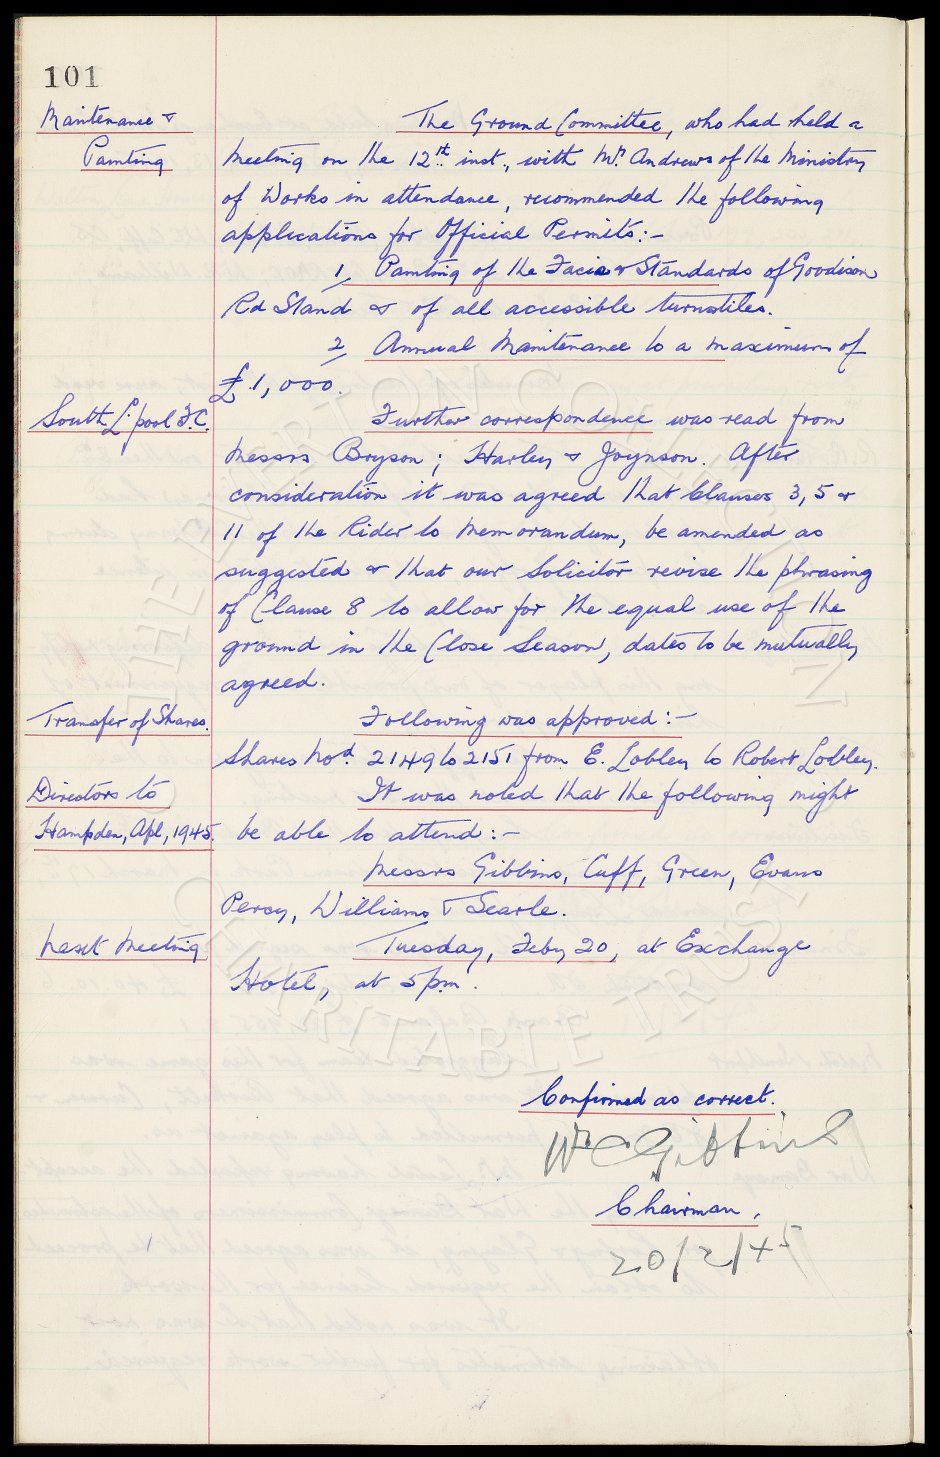 101
Maintenance &
Painting
The Ground Committee, who had held a
meeting on the 12th inst., with Mr. Andrews of the Ministry
of Works in attendance, recommended the following
applications for Official Permits:-
1/ Painting of the Facia & Standards of Goodison
Rd Stand & of all accessible turnstiles.
2/ Annual Maintenance to a maximum of
£1,000.
South L'pool F.C.
Further correspondence was read from
Messrs Bryson; Harley & Joynson. After
consideration it was agreed that Clauses 3, 5 &
11 of the Rider to Memorandum, be amended as
suggested & that our Solicitor revise the phrasing
of Clause 8 to allow for the equal use of the
ground in the Close Season, dates to be mutually
agreed.
Transfer of Shares.
Following was approved:-
Shares Nod. 2149 to 2151 from E. Lobley to Robert Lobley.
Directors to
Hampden, Apl, 1945.
It was noted that the following might
be able to attend:-
Messrs Gibbins, Cuff, Green, Evans
Percy, Williams & Searle.
Next Meeting
Tuesday, Feby 20, at Exchange
Hotel, at 5pm.
Confirmed as correct.
Wm C Gibbins
Chairman.
20/2/45
THE EVERTON COLLECTION
CHARITABLE TRUST